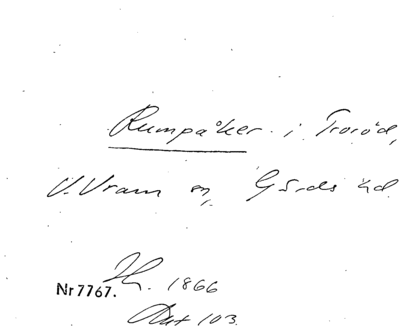 Rumpåker i Troröd,
V. Vram sn, Gärds hd
Nr 7767. 1866
103